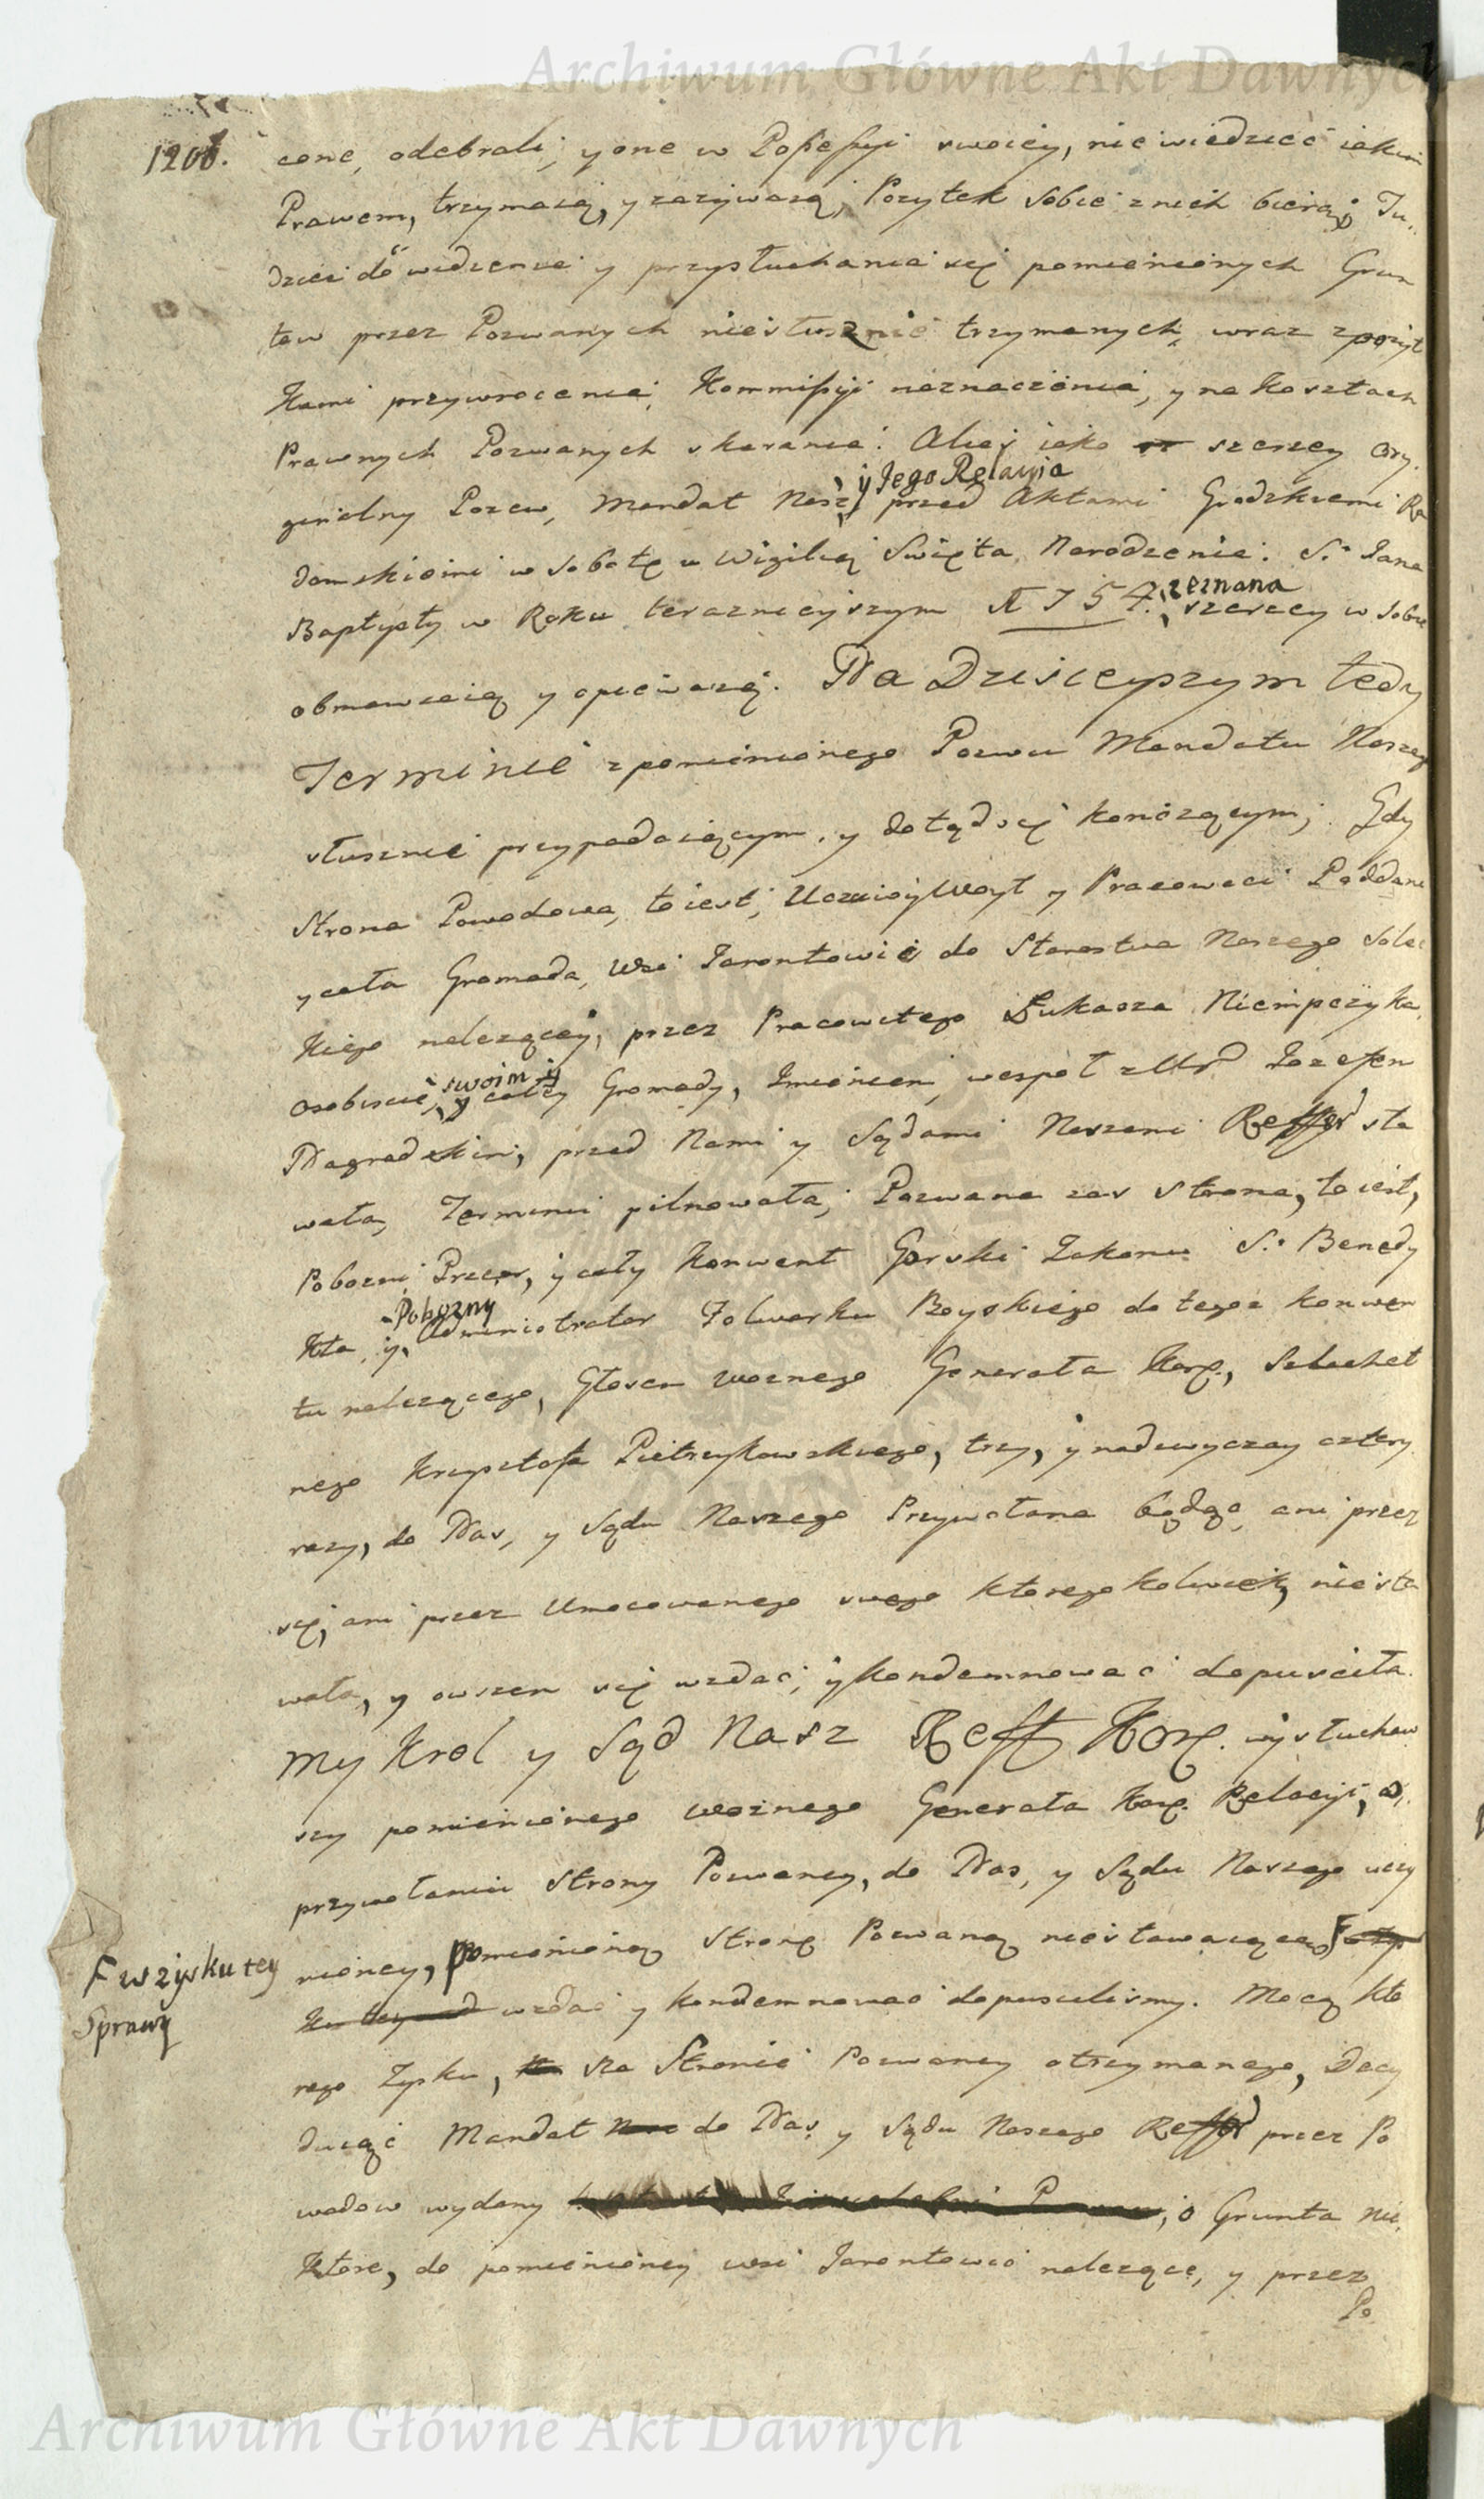 Archiwum Główne Akt Dawnych
1206.
cone, odebrali, y one w Possessyi swoiey, nie wiedzieć iakim
Prawem, trzymaią, y zazywaią, Pozytek sobie z nich bierąc; Tu„
dzież do widzenia y przysłuchania się pomienionych Grun
tow przez Pozwanych niesłusznie trzymanych, wraz z pozyt
kami przywrocenia, Kommissyi naznaczenia, y na Kosztach
Prawnych Pozwanych skarania. Aliaś iako szerzey Ory„
y Jego Relacyia
ginalny Pozew, Mandat Nasz, przed Aktami Grodzkiemi Ra
domskiemi w Sobotę w Wigilią Swięta Narodzenia S.º Jana
zeznana
Baptysty w Roku teraznieyszym 1754. szerzey w sobie
obmawiaią y opiewaią. Na Dzisieyszym tedy
Terminie z pomienionego Pozwu Mandatu Naszego
słusznie przypadaiącym, y dotąd się konczącym; Gdy
Strona Powodowa, to iest, Uczciwy Woyt y Pracowaci Poddani
y cała Gromada, Wsi Jarontowic do Starostwa Naszego Solec
kiego nalezącey, przez Pracowitego Łukasza Niempczyka,
swoim y
osobiscie, y całey Gromady, Imieniem, wespoł z Ur. Jozefem
Nagradzkim, przed Nami y Sądami Naszemi Reffer sta
wała, Terminu pilnowała; Pozwana zas Strona, to iest,
Pobozni Przeor, y cały Konwent Gorski Zakonu S.º Benedy
Pobozny
kta, y Administrator Folwarku Boyskiego do tegoz Konwen
tu nalezącego, Głosem Woznego Generała Kor., Szlachet
nego Krzysztofa Pietrzykowskiego, trzy, y nadzwyczay cztery
razy, do Nas, y Sądu Naszego Przywołana będąc, ani przez
się, ani przez Umocowanego swego ktoregokolwiek, niesta
wała, y owszem się wzdać, y kondemnować dopusciła.
My Krol y Sąd Nasz Reff Kor. wysłuchaw
szy pomienionego Woznego Generała Kor. Relacyi, o
przywołaniu Strony Pozwaney, do Nas, y Sądu Naszego uczy
nioney, pomienioną Stronę Pozwaną niestawaiącą,
F w zysku tey
Sprawy
wzdać y kondemnować dopuscilismy. Mocą kto
rego Zysku, na Stronie Pozwaney otrzymanego, Decy
duiąc Mandat do Nas, y Sądu Naszego Reffer przez Po
wodow wydany, o Grunta nie„
ktore, do pomienioney wsi Jarontowic nalezące, y przez
Po
Archiwum Główne Akt Dawnych